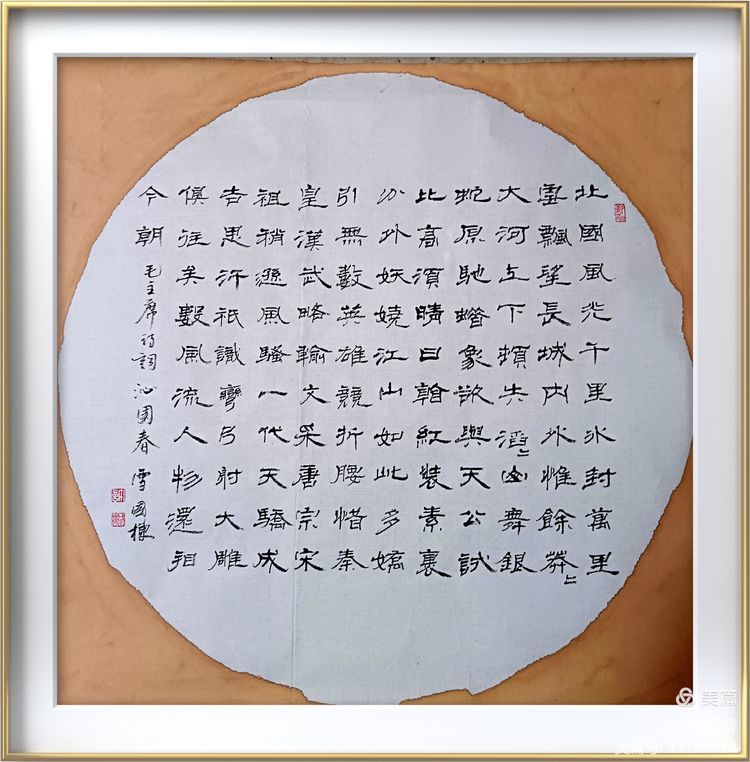 北國風光千里冰封萬里
雪飄望長城内外惟餘莽〻
大河上下頓失滔〻山舞銀
蛇原馳蠟象欲與天公試
比高須晴日看紅裝素裹
分外妖嬈江山如此多嬌
引無數英雄競折腰惜秦
皇漢武略輸文采唐宗宋
祖稍遜風騷一代天驕成
吉思汗祇識彎弓射大雕
俱往矣數風流人物還看
今朝 毛主席詩詞 沁園春 雪 國棟
美篇